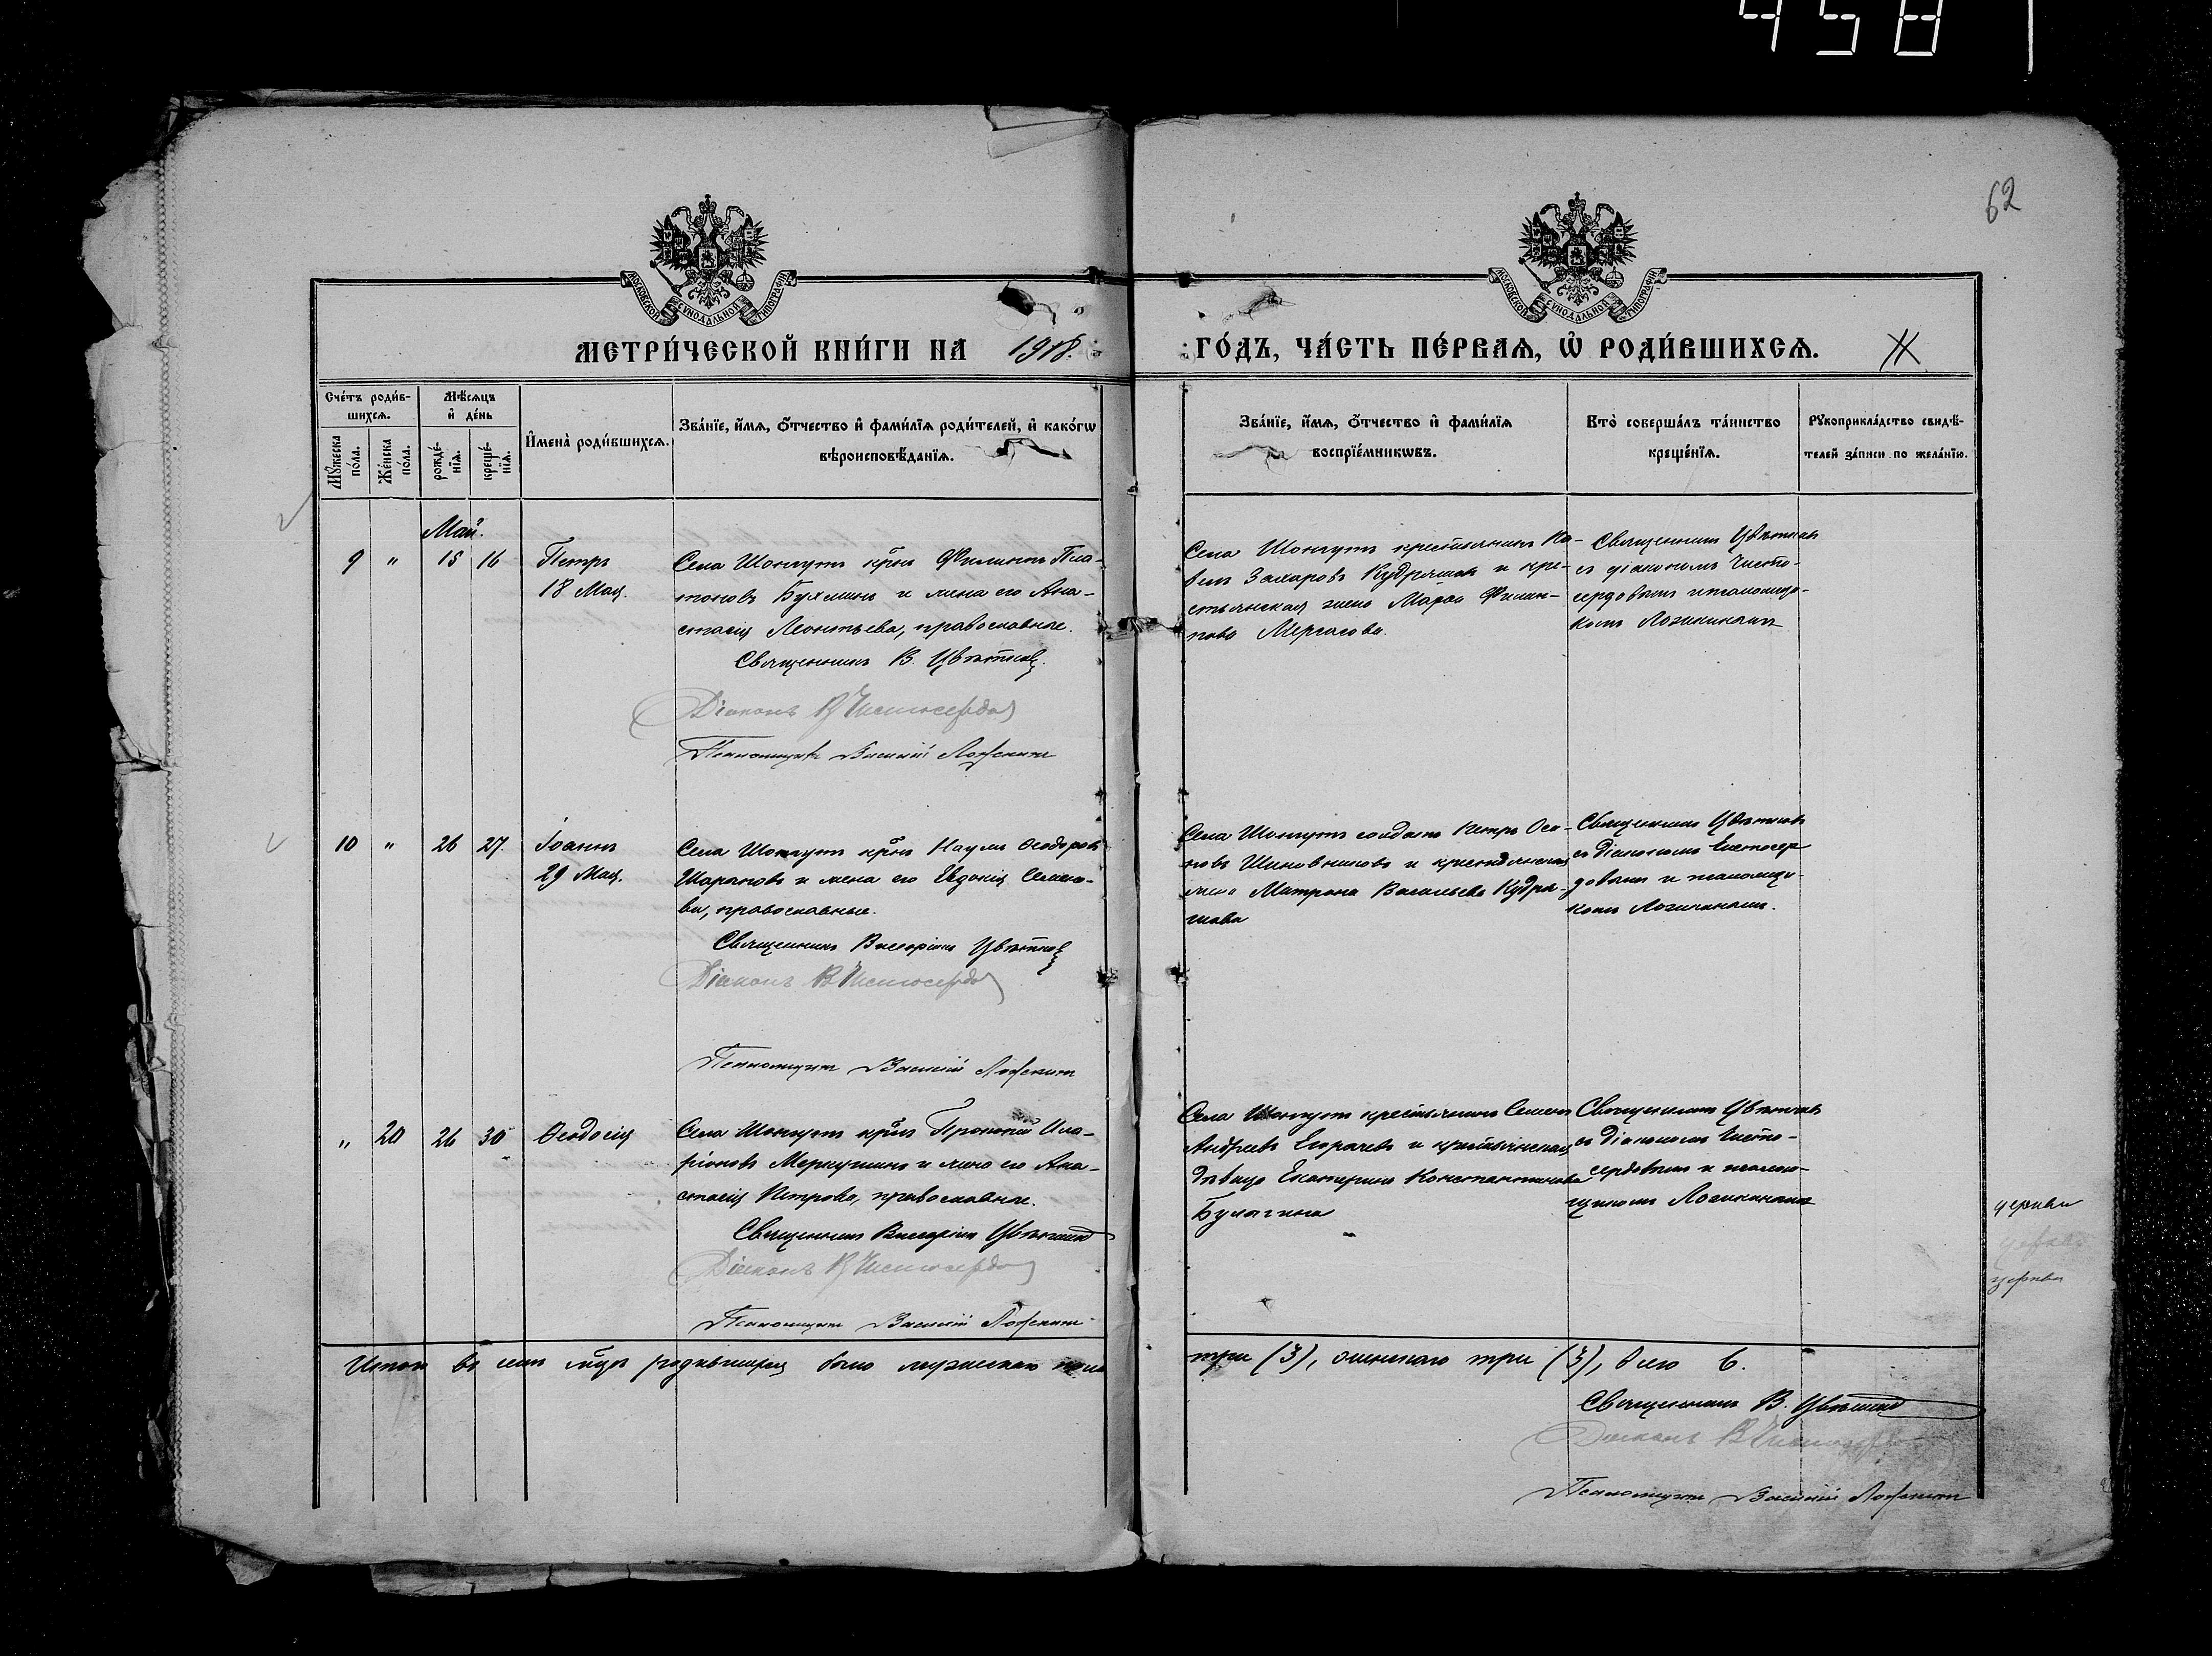 458
62
МОСКОВСКОЙ СѴНОДАЛЬНОЙ ТИПОГРАФІИ
МОСКОВСКОЙ СѴНОДАЛЬНОЙ ТИПОГРАФІИ
МЕТРИ́ЧЕСКОЙ КНИ́ГИ НА 1918.
ГО́ДЪ, ЧА́СТЬ ПЕ́РВАѦ, Ѡ҆ РОДИ́ВШИХСѦ.
Сче́тъ роди́в-
шихсѧ.
Мꙋ́жеска по́ла.
Же́нска по́ла.
Мѣ́сѧцъ
и҆ де́нь
рожде́-
нїѧ.
креще́-
нїѧ.
И҆мена̀ роди́вшихсѧ.
Зва́нїе, и҆́мѧ, ѻ҆́тчество и҆ фами́лїѧ роди́телей, и҆ како́гѡ
вѣроисповѣ́данїѧ.
Зва́нїе, и҆́мѧ, ѻ҆́тчество и҆ фами́лїѧ
воспрїе́мникѡвъ.
Кто̀ соверша́лъ та́инство
креще́нїѧ.
Рꙋкоприкла́дство свидѣ́-
телей за́писи по жела́нїю.
Май.
9 " 15 16
Петръ
18 Мая.
Села Шонгутъ крнъ Филиппъ Пла-
тоновъ Бухминъ и жена его Ана-
стасія Леонтьева, православные.
Священникъ В. Цвѣтковъ.
Діаконъ В Чистосердовъ
Псаломщикъ Василій Ложкинъ
Села Шонгутъ крестьянинъ Па-
велъ Захаровъ Кудряшовъ и кре-
стьянская жена Марѳа Филип-
пова
Священникъ Цвѣтковъ
съ діакономъ Чисто-
сердовымъ и псаломщи-
комъ
10 " 26 27
Іоаннъ
29 Мая.
Села Шонгутъ крнъ Наумъ Ѳеодоровъ
Шарановъ и жена его Евдокія Семено-
ва, православные.
Священникъ Виссаріонъ Цвѣтковъ
Діаконъ В Чистосердовъ
Псаломщикъ Василій Ложкинъ
Села Шонгутъ солдатъ Петръ Оси-
повъ Шиновниковъ и крестьянская
жена Матрона Васильева Кудря-
шова
Священникъ Цвѣтковъ
съ діакономъ Чистосер-
довымъ и псаломщи-
комъ
" 20 26 30
Ѳеодосія
Села Шонгутъ крнъ Прокопій Ила-
ріоновъ Меркушинъ и жена его Ана-
стасія Петрова, православные.
Священникъ Виссаріонъ Цвѣтковъ
Діаконъ В Чистосердовъ
Псаломщикъ Василій Ложкинъ
Села Шонгутъ крестьянинъ Семенъ
Андреевъ и крестьянская
дѣвица Екатерина Константинова
Булыгина
Священникъ Цвѣтковъ
съ діакономъ Чисто-
сердовымъ и псалом-
щикомъ
церкви
церкви
церкви
Итого въ маѣ мцѣ родившихся было мужескаго пола
три (3), женскаго три (3), всего 6.
Священникъ В. Цвѣтковъ
Діаконъ В Чистосердовъ
Псаломщикъ Василій Ложкинъ